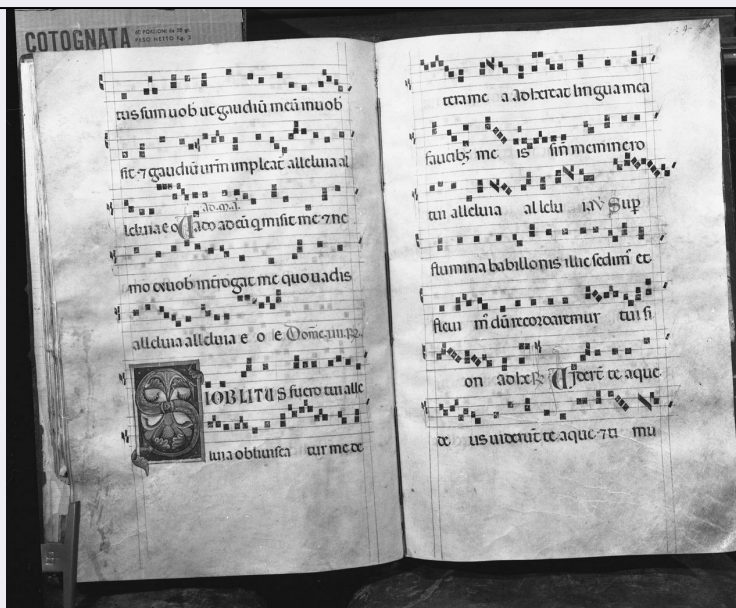 COTOGNATA
60 PORZIONI da 50 gr.
PESO NETTO Kg. 3
tus sum uob ut gaudiū meū in uob
sit ⁊ gaudiū urm̄ impleat alleluia al
leluia e o Uado ad eū q misit me ⁊ ne
mo ex uob introgat me quo uadis
alleluia alleluia e o e Dom̄c
SI OBLITUS fuero tui alle
luia obliuisca tur me de
tera me a Adhereat lingua mea
faucibꝫ me is si n̄ meminero
tui alleluia allelu ia V Sup
flumina babillonis illic sedim̄ et
fleui m̄ dū recordaremur tui si
on adhe Uidert̄ te aque
de us uiderūt te aque ⁊ ti mu